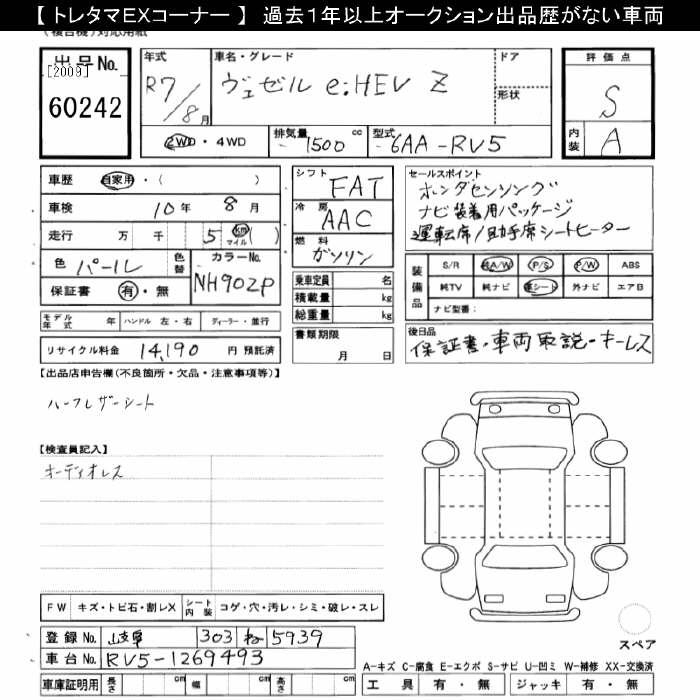 【 トレタマEXコーナー 】 過去1年以上オークション出品歴がない車両
(複合機)対応用紙
出品No. [2009] 60242
年式 R7/8月
車名・グレード ヴェゼル e:HEV Z
ドア
形状
評価点 S
内装 A
2WD・4WD
排気量 1500 cc
型式 6AA-RV5
車歴 自家用・( )
車検 10年 8月
走行 万 千 5 km マイル ( )
色 パール 色替
カラーNo. NH902P
保証書 有・無
シフト FAT
冷房 AAC
燃料 ガソリン
乗車定員 名
積載量 kg
総重量 kg
セールスポイント
ホンダセンシング
ナビ装着用パッケージ
運転席/助手席シートヒーター
装備品 S/R 純A/W P/S P/W ABS
純TV 純ナビ 革シート 外ナビ エアB
ナビ型番:
モデル年式 年 ハンドル 左・右 ディーラー・並行
書類期限
月 日
リサイクル料金 14,190 円 預託済
後日品
保証書・車両取説・キーレス
【出品店申告欄(不良箇所・欠品・注意事項等)】
ハーフレザーシート
【検査員記入】
オーディオレス
FW キズ・トビ石・割レX シート内装 コゲ・穴・汚レ・シミ・破レ・スレ
登録No. 岐阜 303 ね 5939
車台No. RV5-1269493
車庫証明用 長さ cm 幅 cm 高さ cm
スペア
A-キズ C-腐食 E-エクボ S-サビ U-凹ミ W-補修 XX-交換済
工具 有・無 ジャッキ 有・無